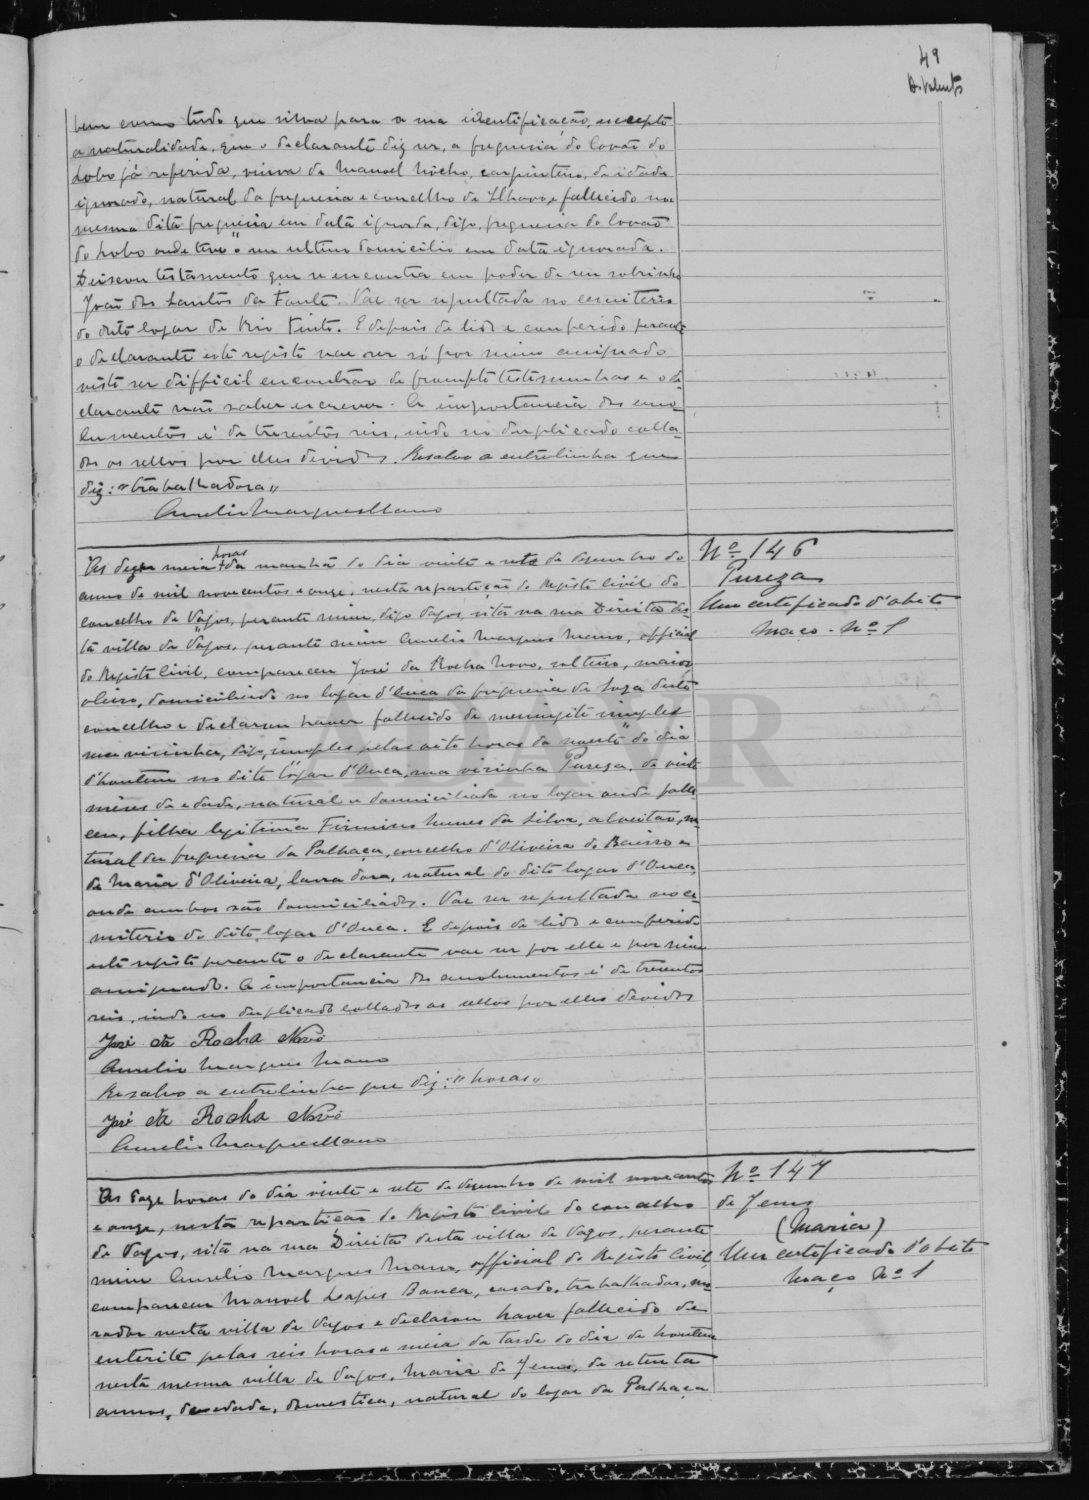 49
bem como tudo que sirva para a sua identificação, excepto
a naturalidade, que o declarante diz ser, a freguesia do Covão do
Lobo já referida, viuva de Manoel Nócho, carpinteiro, de idade
ignorada, natural da freguesia e concelho de Ilhavo, e fallecido na
mesma dita freguesia em data ignorada, digo, freguesia do Covão
do Lobo onde teve o seu ultimo domicilio em data ignorada.
Deixou testamento que se encontra em poder de seu sobrinho
João dos Santos da Fonte. Vae ser sepultada no cemiterio
do dito logar de Rio Tinto. E depois de lido e conferido perante
o declarante este registo vae ser só por mim assignado
visto ser difficil encontrar de prompto testemunhas e o de-
clarante não saber escrever. A importancia dos emo-
lumentos é de trezentos reis, indo no duplicado colla-
dos os sellos por elles devidos. Resalvo a entrelinha que
diz: "trabalhadora"
Aurelio Marques Mano
Nº 146
Pureza
Um certeficado d'obito
Maço - Nº 1
As dez e meia horas da manhã do dia vinte e sete de dezembro do
anno de mil novecentos e onze, nesta repartição do Registo civil do
concelho de Vagos, perante mim, digo Vagos, sita na rua Direita des-
ta villa de Vagos, perante mim Aurelio Marques Mano, official
do Registo Civil, compareceu José da Rocha Novo, solteiro, maior
oleiro, domiciliado no logar d'Ouca da freguesia de Soza deste
concelho e declarou haver fallecido de meningite simples
sua visinha, digo, simples pelas oito horas da noute do dia
d'hontem no dito logar d'Ouca, sua visinha Pureza, de vinte
mêses de edade, natural e domiciliada no logar onde falle-
ceu, filha legitima Firmino Nunes da Silva, alveitar, na-
tural da freguesia da Palhaça, concelho d'Oliveira do Bairro e
de Maria d'Oliveira, lavradora, natural do dito logar d'Ouca,
onde ambos são domiciliados. Vae ser sepultada no ce-
miterio do dito logar d'Ouca. E depois de lido e conferido
este registo perante o declarante vae ser por elle e por mim
assignado. A importancia dos emolumentos é de trezentos
reis, indo no duplicado collados os sellos por elles devidos
José da Rocha Novo
Aurelio Marques Mano
Resalvo a entrelinha que diz: "horas"
José da Rocha Novo
Aurelio Marques Mano
Nº 147
de Jesus
(Maria)
Um certeficado d'obito
Maço Nº 1
As doze horas do dia vinte e sete de dezembro de mil novecentos
e onze, nesta repartição do Registo Civil do concelho
de Vagos, sita na rua Direita desta villa de Vagos, perante
mim Aurelio Marques Mano, official do Registo Civil,
compareceu Manoel Lopes Banca, casado, trabalhador, mo-
rador nesta villa de Vagos e declarou haver fallecido de
enterite pelas seis horas e meia da tarde do dia de hontem
nesta mesma villa de Vagos, Maria de Jesus, de setenta
annos, de edade, domestica, natural do logar da Palhaça
ADAVR